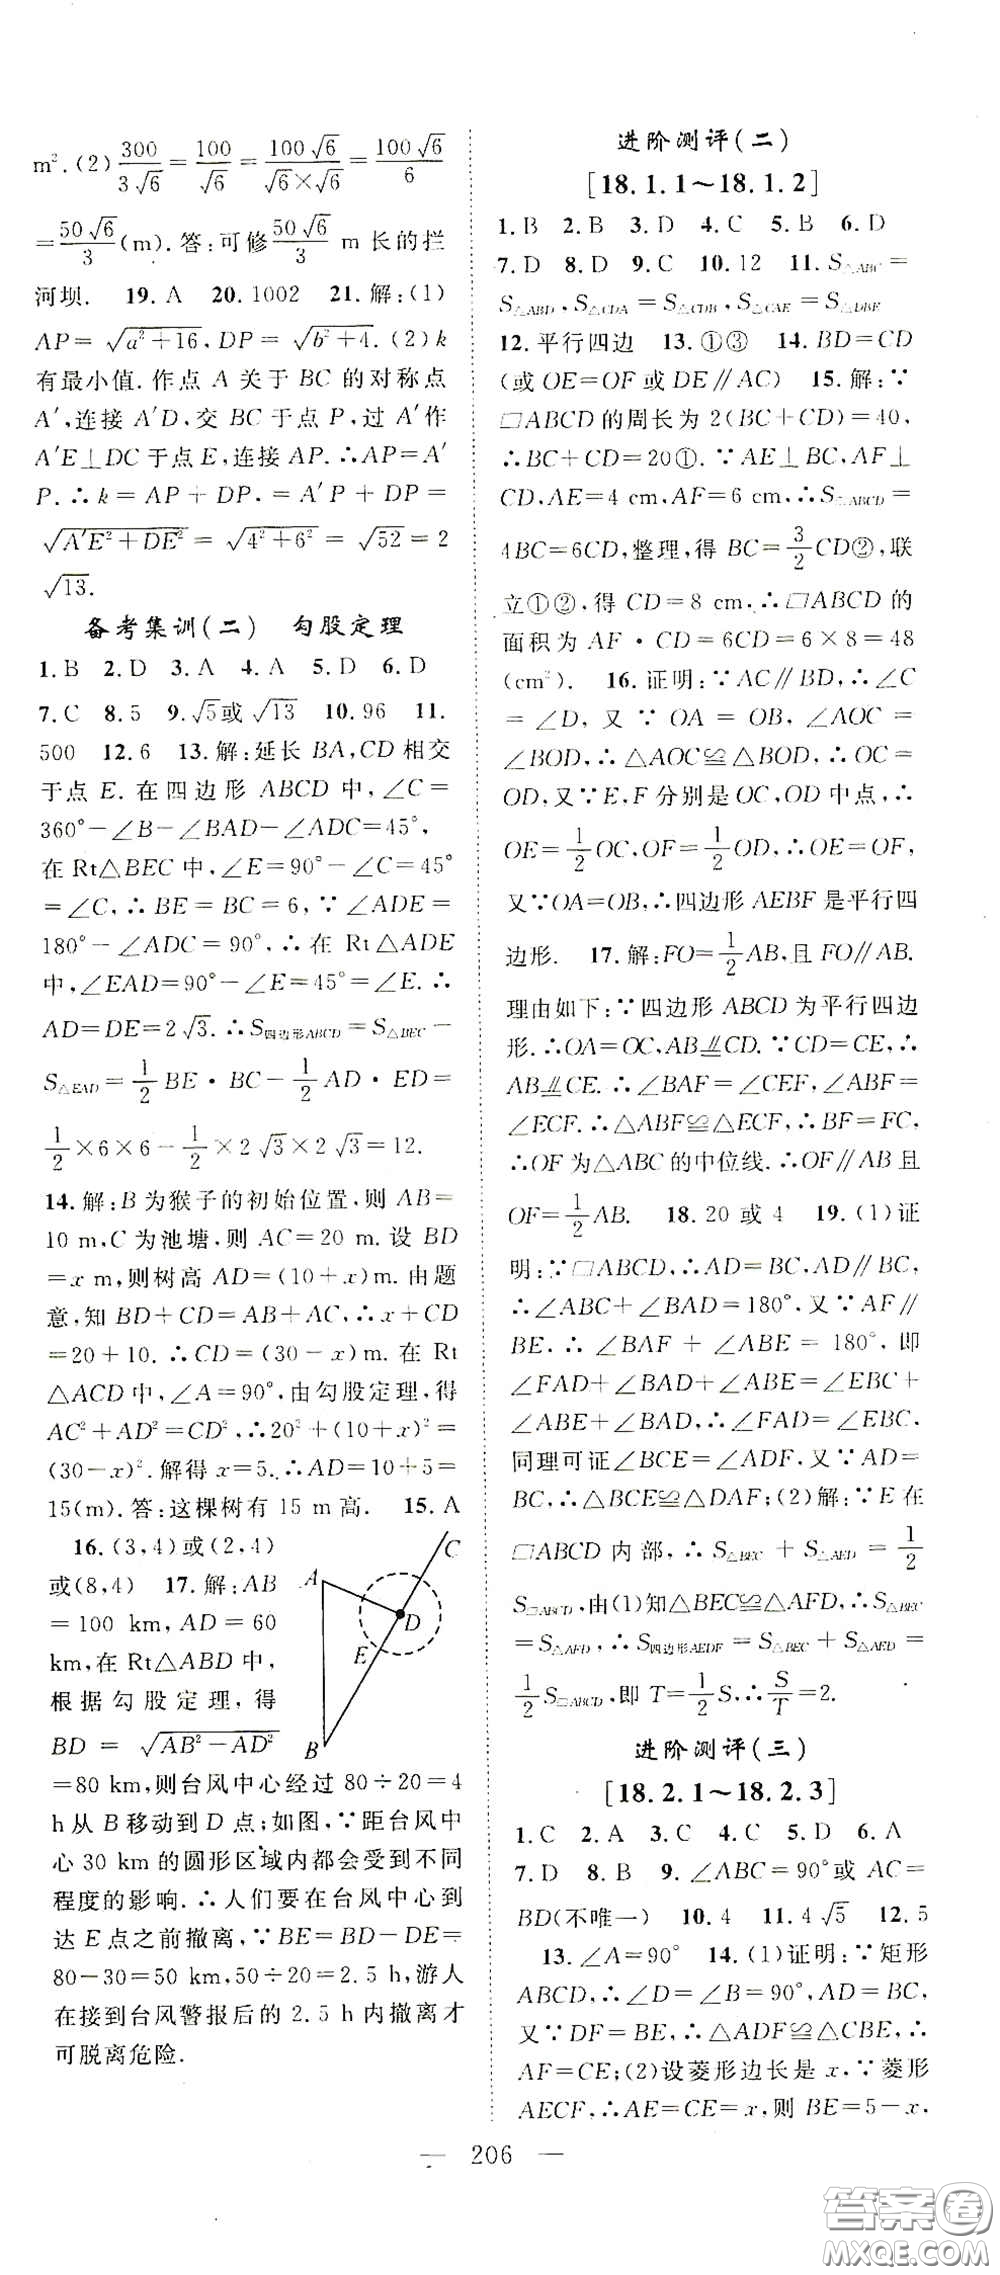 m².(2)300/3√6=100/√6=100√6/√6×√6=100√6/6
=50√6/3(m).答:可修50√6/3 m长的拦
河坝. 19.A 20.1002 21.解:(1)
AP=√a²+16,DP=√b²+4.(2)k
有最小值.作点A关于BC的对称点
A′,连接A′D,交BC于点P,过A′作
A′E⊥DC于点E,连接AP.∴AP=A′
P.∴k=AP+DP.=A′P+DP=
√A′E²+DE²=√4²+6²=√52=2
√13.
备考集训(二) 勾股定理
1.B 2.D 3.A 4.A 5.D 6.D
7.C 8.5 9.√5或√13 10.96 11.
500 12.6 13.解:延长BA,CD相交
于点E.在四边形ABCD中,∠C=
360°-∠B-∠BAD-∠ADC=45°,
在Rt△BEC中,∠E=90°-∠C=45°
=∠C,∴BE=BC=6,∵∠ADE=
180°-∠ADC=90°,∴在Rt△ADE
中,∠EAD=90°-∠E=45°=∠E.∴
AD=DE=2√3.∴S四边形ABCD=S△BEC-
S△EAD=1/2BE·BC-1/2AD·ED=
1/2×6×6-1/2×2√3×2√3=12.
14.解:B为猴子的初始位置,则AB=
10 m,C为池塘,则AC=20 m.设BD
=x m,则树高AD=(10+x)m.由题
意,知BD+CD=AB+AC,∴x+CD
=20+10.∴CD=(30-x)m.在Rt
△ACD中,∠A=90°,由勾股定理,得
AC²+AD²=CD²,∴20²+(10+x)²=
(30-x)².解得x=5.∴AD=10+5=
15(m).答:这棵树有15 m高. 15.A
16.(3,4)或(2,4)
或(8,4) 17.解:AB
=100 km,AD=60
km,在Rt△ABD中,
根据勾股定理,得
BD=√AB²-AD²
A
B
C
D
E
=80 km,则台风中心经过80÷20=4
h从B移动到D点;如图,∵距台风中
心30 km的圆形区域内都会受到不同
程度的影响.∴人们要在台风中心到
达E点之前撤离,∵BE=BD-DE=
80-30=50 km,50÷20=2.5 h,游人
在接到台风警报后的2.5 h内撤离才
可脱离危险.
进阶测评(二)
[18.1.1～18.1.2]
1.B 2.B 3.D 4.C 5.B 6.D
7.D 8.D 9.C 10.12 11.S△ABC=
S△ABD,S△CDA=S△CDB,S△CAE=S△DBE
12.平行四边 13.①③ 14.BD=CD
(或OE=OF或DE∥AC) 15.解:∵
□ABCD的周长为2(BC+CD)=40,
∴BC+CD=20①.∵AE⊥BC,AF⊥
CD,AE=4 cm,AF=6 cm,∴S□ABCD=
4BC=6CD,整理,得BC=3/2CD②,联
立①②,得CD=8 cm,∴□ABCD的
面积为AF·CD=6CD=6×8=48
(cm²). 16.证明:∵AC∥BD,∴∠C
=∠D,又∵OA=OB,∠AOC=
∠BOD,∴△AOC≌△BOD,∴OC=
OD,又∵E,F分别是OC,OD中点,∴
OE=1/2OC,OF=1/2OD,∴OE=OF,
又∵OA=OB,∴四边形AEBF是平行四
边形. 17.解:FO=1/2AB,且FO∥AB.
理由如下:∵四边形ABCD为平行四边
形.∴OA=OC,AB⫽CD.∵CD=CE,∴
AB⫽CE.∴∠BAF=∠CEF,∠ABF=
∠ECF.∴△ABF≌△ECF,∴BF=FC,
∴OF为△ABC的中位线.∴OF∥AB且
OF=1/2AB. 18.20或4 19.(1)证
明:∵□ABCD,∴AD=BC,AD∥BC,
∴∠ABC+∠BAD=180°,又∵AF∥
BE.∴∠BAF+∠ABE=180°,即
∠FAD+∠BAD+∠ABE=∠EBC+
∠ABE+∠BAD,∴∠FAD=∠EBC,
同理可证∠BCE=∠ADF,又∵AD=
BC,∴△BCE≌△DAF;(2)解:∵E在
□ABCD内部,∴S△BEC+S△AED=1/2
S□ABCD,由(1)知△BEC≌△AFD,∴S△BEC
=S△AFD,∴S四边形AEDF=S△BEC+S△AED=
1/2S□ABCD,即T=1/2S,∴S/T=2.
进阶测评(三)
[18.2.1～18.2.3]
1.C 2.A 3.C 4.C 5.D 6.A
7.D 8.B 9.∠ABC=90°或AC=
BD(不唯一) 10.4 11.4√5 12.5
13.∠A=90° 14.(1)证明:∵矩形
ABCD,∴∠D=∠B=90°,AD=BC,
又∵DF=BE,∴△ADF≌△CBE,∴
AF=CE;(2)设菱形边长是x,∵菱形
AECF,∴AE=CE=x,则BE=5-x,
— 206 —
答案卷
MXQE.COM